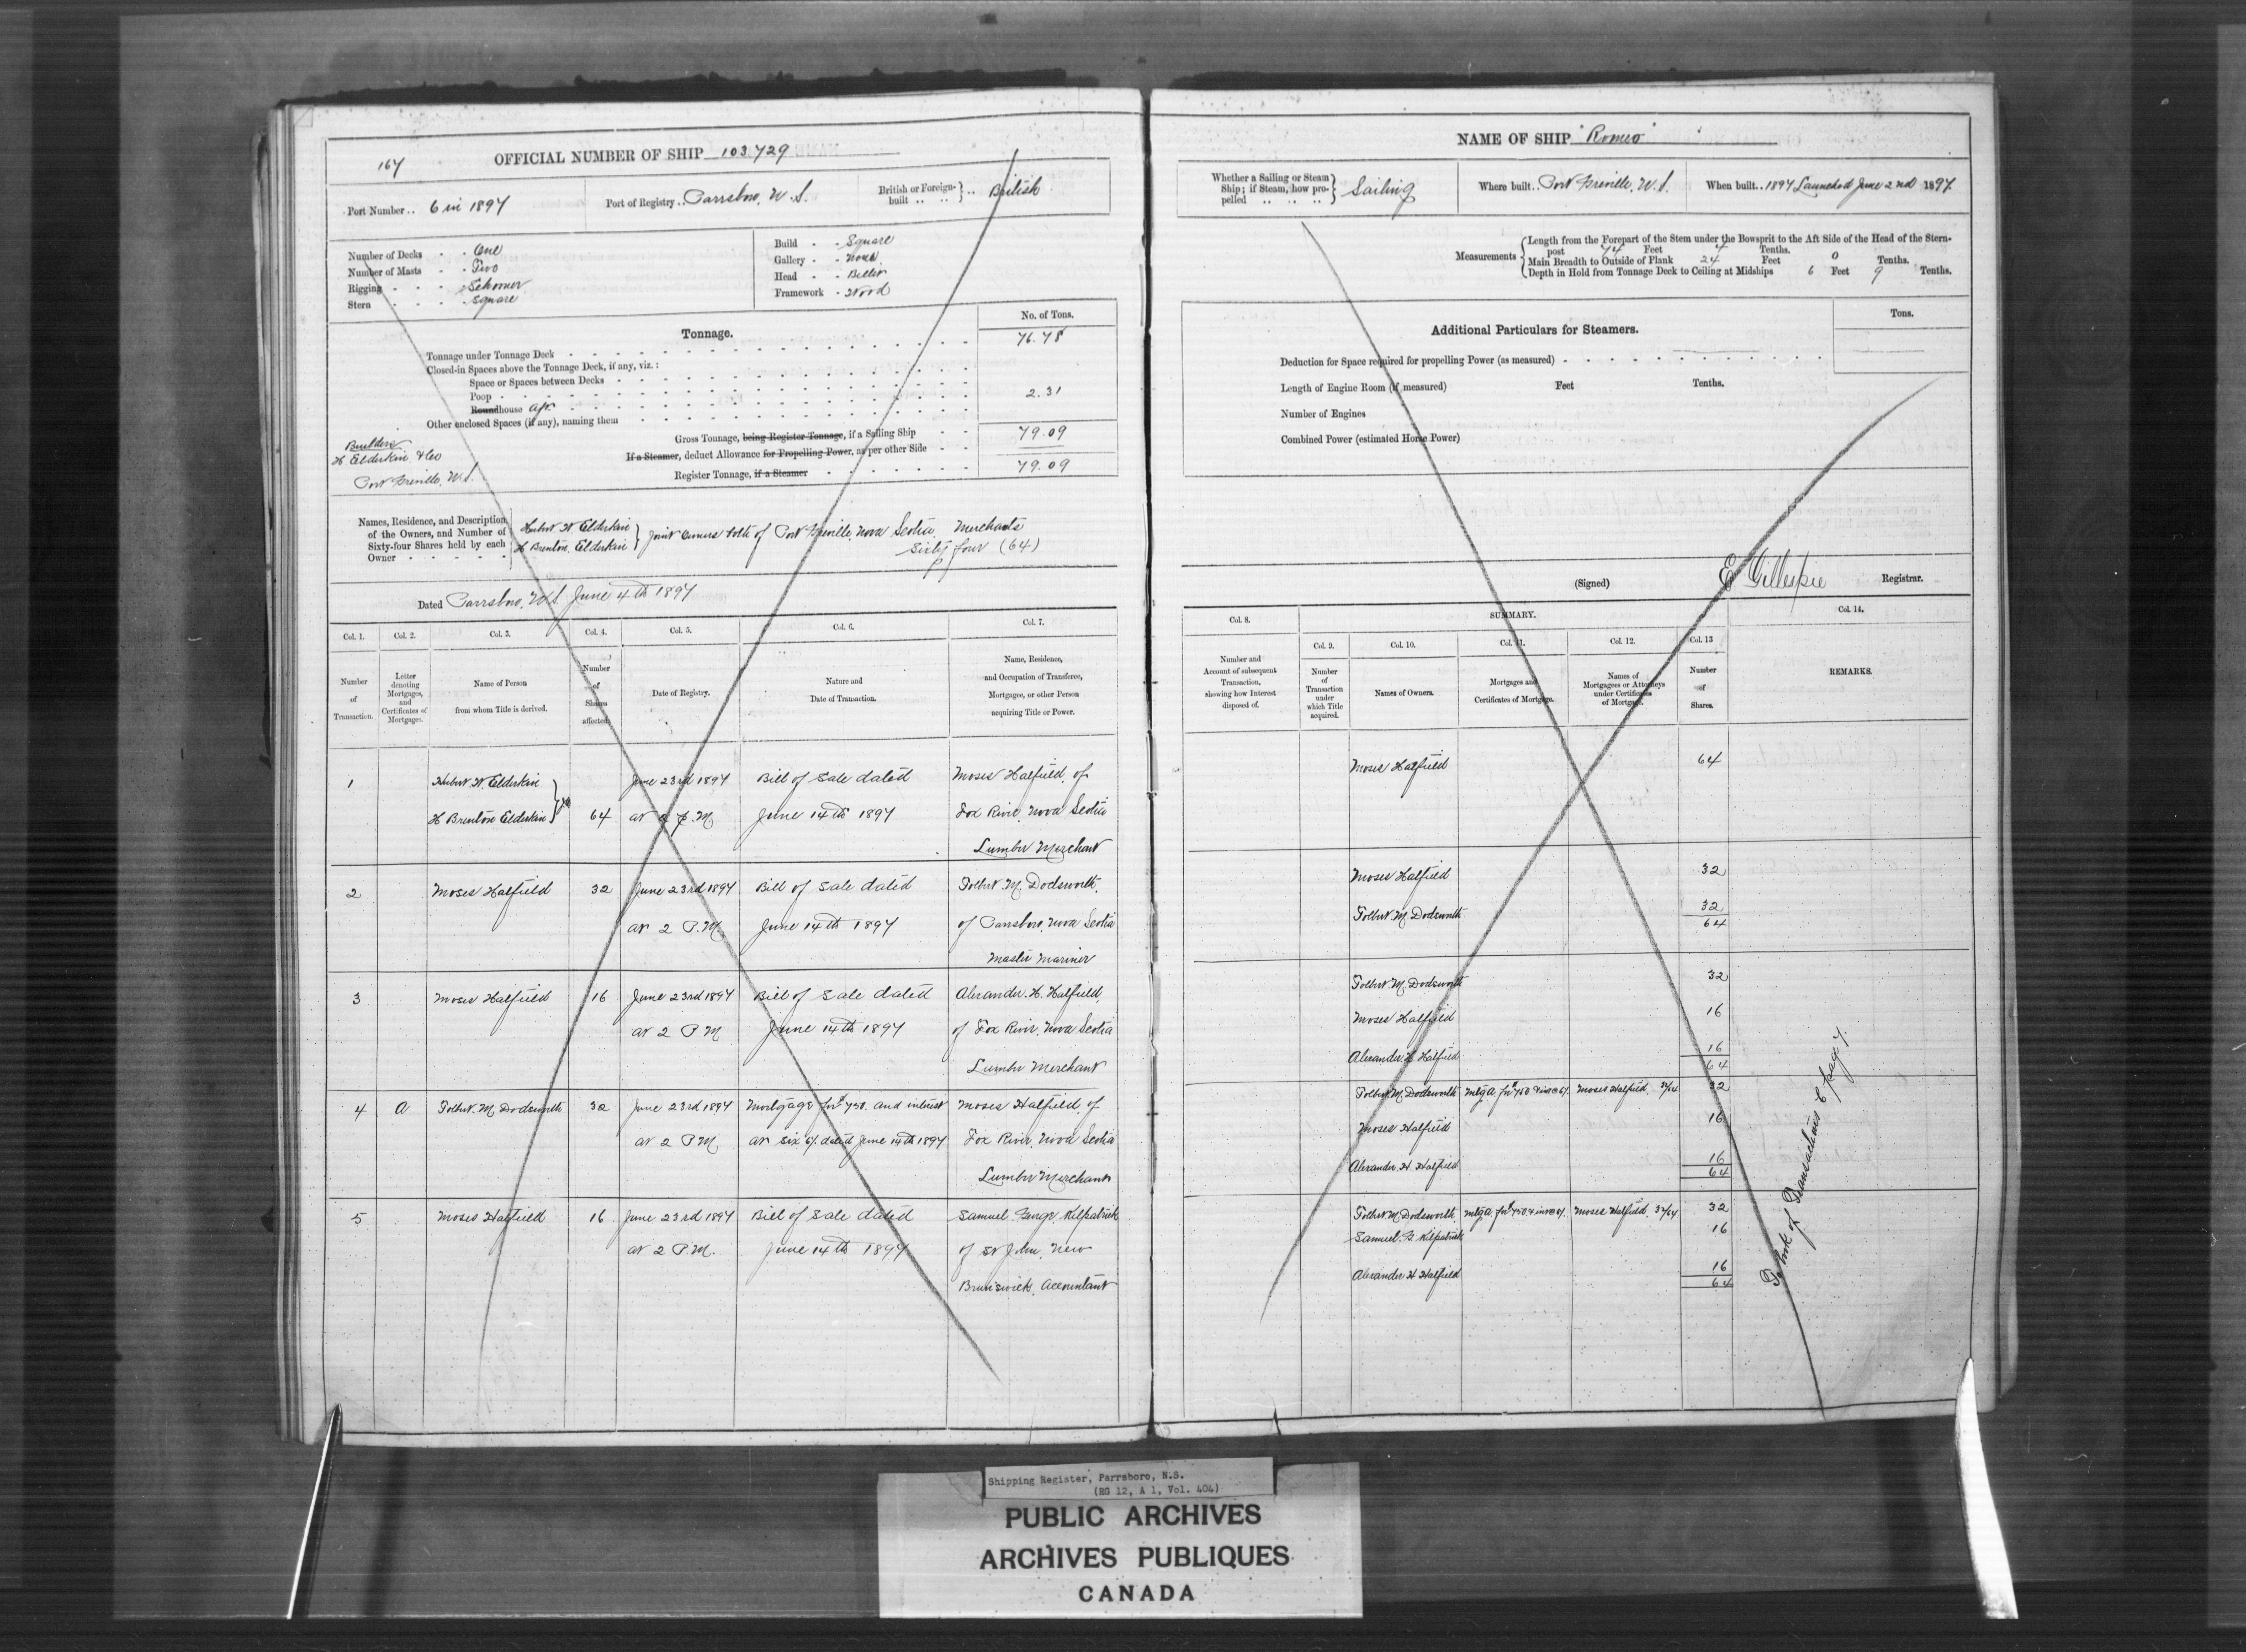 167
OFFICIAL NUMBER OF SHIP 103.729
Port Number .. 6 in 1897
Port of Registry .. Parrsboro, N.S.
British or Foreign-built .. British
Number of Decks - - One
Number of Masts - - Two
Rigging - - - Schooner
Stern - - - - Square
Build - - Square
Gallery - - None
Head - - Billet
Framework - Wood
Tonnage.
No. of Tons.
Tonnage under Tonnage Deck 76.78
Closed-in Spaces above the Tonnage Deck, if any, viz.:
Space or Spaces between Decks
Poop
Roundhouse aft. 2.31
Other enclosed Spaces (if any), naming them
Gross Tonnage, being Register Tonnage, if a Sailing Ship 79.09
If a Steamer, deduct Allowance for Propelling Power, as per other Side
Register Tonnage, if a Steamer 79.09
Builders
H. Elderkin & Co
Port Greville, N.S.
Names, Residence, and Description of the Owners, and Number of Sixty-four Shares held by each Owner
H Brenton Elderkin
Joint Owners both of Port Greville, Nova Scotia, Merchants
Sixty four (64)
Dated Parrsboro, N.S. June 4th 1897
Col. 1. Col. 2. Col. 3. Col. 4. Col. 5. Col. 6. Col. 7.
Number of Transaction.
Letter denoting Mortgages, and Certificates of Mortgage.
Name of Person from whom Title is derived.
Number of Shares affected.
Date of Registry.
Nature and Date of Transaction.
Name, Residence, and Occupation of Transferee, Mortgagee, or other Person acquiring Title or Power.
1 W. Elderkin June 23rd 1897 Bill of Sale dated Moses Hatfield, of
H Brenton Elderkin 64 at 2 P.M. June 14th 1897 Fox River, Nova Scotia
Lumber Merchant
2 Moses Hatfield 32 June 23rd 1897 Bill of Sale dated Tolbert M. Dodsworth,
at 2 P.M. June 14th 1897 of Parrsboro, Nova Scotia
Master Mariner
3 Moses Hatfield 16 June 23rd 1897 Bill of Sale dated Alexander H. Hatfield,
at 2 P.M. June 14th 1897 of Fox River, Nova Scotia
Lumber Merchant
4 A Tolbert M. Dodsworth 32 June 23rd 1897 Mortgage for $750. and interest Moses Hatfield, of
at 2 P.M. at six %. dated June 14th 1897 Fox River, Nova Scotia
Lumber Merchant
5 Moses Hatfield 16 June 23rd 1897 Bill of Sale dated Samuel George Kilpatrick
at 2 P.M. June 14th 1897 of St John, New
Brunswick, Accountant
NAME OF SHIP "Romeo"
Whether a Sailing or Steam Ship; if Steam, how propelled Sailing
Where built .. Port Greville, N.S.
When built .. 1897 Launched June 2nd 1897.
Measurements
Length from the Forepart of the Stem under the Bowsprit to the Aft Side of the Head of the Stern-
post 74 Feet 4 Tenths.
Main Breadth to Outside of Plank 24 Feet 0 Tenths.
Depth in Hold from Tonnage Deck to Ceiling at Midships 6 Feet 9 Tenths.
Additional Particulars for Steamers.
Tons.
Deduction for Space required for propelling Power (as measured)
Length of Engine Room (if measured) Feet Tenths.
Number of Engines
Combined Power (estimated Horse Power)
(Signed) E Gillespie Registrar.
SUMMARY.
Col. 8. Col. 9. Col. 10. Col. 11. Col. 12. Col. 13 Col. 14.
Number and Account of subsequent Transaction, showing how Interest disposed of.
Number of Transaction under which Title acquired.
Names of Owners.
Mortgages and Certificates of Mortgage.
Names of Mortgagees or Attorneys under Certificates of Mortgage.
Number of Shares.
REMARKS.
Moses Hatfield 64
Moses Hatfield 32
Tolbert M. Dodsworth 32
64
Tolbert M. Dodsworth 32
Moses Hatfield 16
Alexander H Hatfield 16
64
Tolbert M. Dodsworth Mtg A for $750 & int @ 6%. Moses Hatfield. 32/64 32
Moses Hatfield 16
Alexander H Hatfield 16
64
Tolbert M. Dodsworth Mtg A for $750 & int @ 6%. Moses Hatfield. 32/64 32
Samuel G. Kilpatrick 16
Alexander H Hatfield 16
64
To Book of Transactions C page 7.
Shipping Register, Parrsboro, N.S.
(RG 12, A 1, Vol. 404)
PUBLIC ARCHIVES
ARCHIVES PUBLIQUES
CANADA